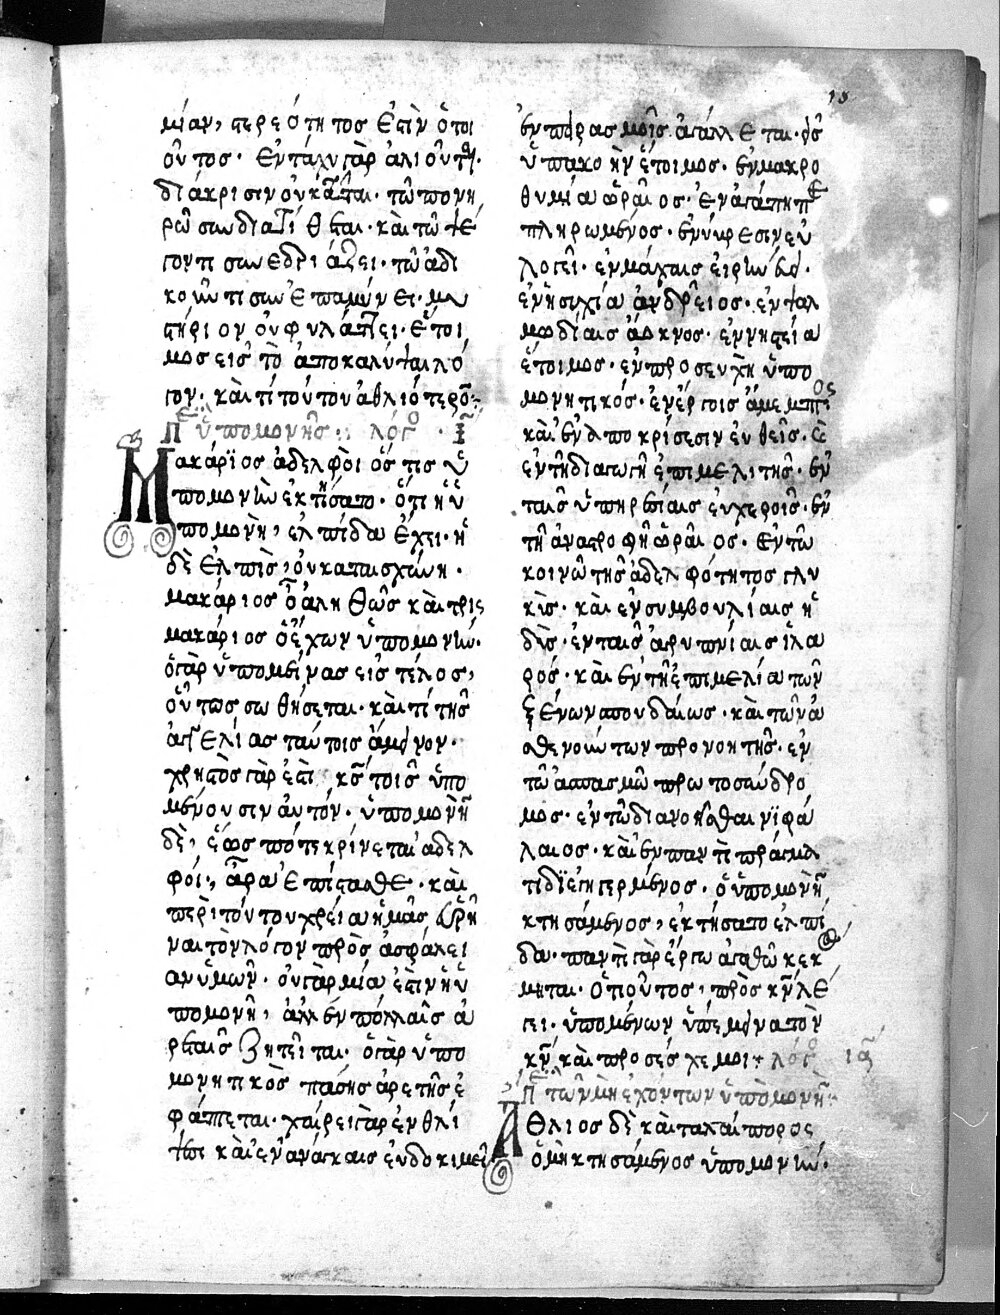 μίαν, στερεότητος ἐστὶν ὅτοι
οῦτος· ἐν πάλιν γὰρ
διάκρισιν οὐ κάμπται· τῶ πονη
ρῶ συνδιατίθεται· καὶ τῶ ψέ
γοντι συνεδριάζει· τῶ ἀδι
κοῦντι συνεπαμύνει· μυ
στήριον οὐ φυλάττει· ἕτοι
μος εἰς τὸ ἀποκαλύψαι λό
γον· καὶ τί τούτου ἀθλιότερον·
Π ὑπομονῆς· λόγο ι
Μακάριος ἀδελφοὶ ὅς τις ὑ
πομονὴν ἐκτήσατο· ὅτι ἡ ὑ
πομονὴ, ἐλπίδα ἔχει· ἡ
δὲ ἐλπὶς, οὐ καταισχύνη·
μακάριος ὁ ἀληθῶς καὶ τρὶς
μακάριος ὁ ἔχων ὑπομονὴν·
ὁ γὰρ ὑπομείνας εἰς τέλος,
οὕτως σωθήσεται· καὶ τί τῆς
ἀγγελίας ταύτοις ἄμεινον·
χρηστὸς γὰρ ἐστὶ κς τοῖς ὑπο
μένουσιν αὐτόν· ὑπομονὴ
δὲ, ἕως πότε κρίνεται ἀδελ
φοί, ἄρα ἐπίστασθε· καὶ
περὶ τούτου χρεία ἡμᾶς εὑρῆ
ναι τὸν λόγον πρὸς ἀσφάλει
αν ὑμῶν· οὐ γὰρ μία ἐστὶν ἡ ὑ
πομονὴ, ἀλλ' ἐν πολλαῖς ἀ
ρεταῖς ζητεῖται· ὁ γὰρ ὑπο
μονητικὸς πάσης ἀρετῆς ἐ
φάπτεται· χαίρει γὰρ ἐν θλί
ψει καὶ ἐν ἀνάγκαις εὐδοκιμεῖ
ἐν πειρασμοῖς ἀγάλλεται· εἰς
ὑπακοὴν ἕτοιμος· ἐν μακρο
θυμία ὡραῖος· ἐν ἀγάπη πε
πληρωμένος· ἐν ὕβρεσιν εὐ
λογεῖ· ἐν μάχαις εἰρηνεύει·
ἐν ἡσυχία ἀνδρεῖος· ἐν ψαλ
μωδίαις ἄοκνος· ἐν νηστεία
ἕτοιμος· ἐν προσευχῆ ὑπο
μονητικός· ἐν ἔργοις ἄμεμπτος
καὶ ἐν ἀποκρίσεσιν εὐθεῖς·
ἐν τῆ διαγωγῆ ἐπιμελιτής· ἐν
ταῖς ὑπηρεσίαις εὐχερεῖς· ἐν
τῆ ἀναστροφῆ ὡραῖος· ἐν τῶ
κοινῶ τῆς ἀδελφότητος γλυ
κὶς· καὶ ἐν συμβουλίαις ἡ
δὺς· ἐν ταῖς ἀγρυπνίαις ἱλα
ρός· καὶ ἐν τῆ ἐπιμελία τῶν
ξένων σπουδαίως· καὶ τῶν ἀ
σθενούντων προνοητῆς· ἐν
τῶ ἀσπασμῶ πρωτοσύνδρο
μος· ἐν τῶ διανοεῖσθαι νϊφά
λαιος· καὶ ἐν παντὶ πράγμα
τι διεγηγερμένος· ὁ ὑπομονὴν
κτησάμενος, ἐκτήσατο ἐλπί
δα· παντὶ γὰρ ἔργω ἀγαθῶ κεκόσ
μηται· ὁ τιοῦτος, πρὸς κν λέ
γει· ὑπομένων ὑπέμεινα τὸν
κν καὶ προσέσχε μοι· λόγο ια
Π τῶν μὴ εχόντων ὑπομονὴν
Άθλιος δὲ καὶ ταλαίπωρος
ὁ μὴ κτησάμενος ὑπομονὴν·